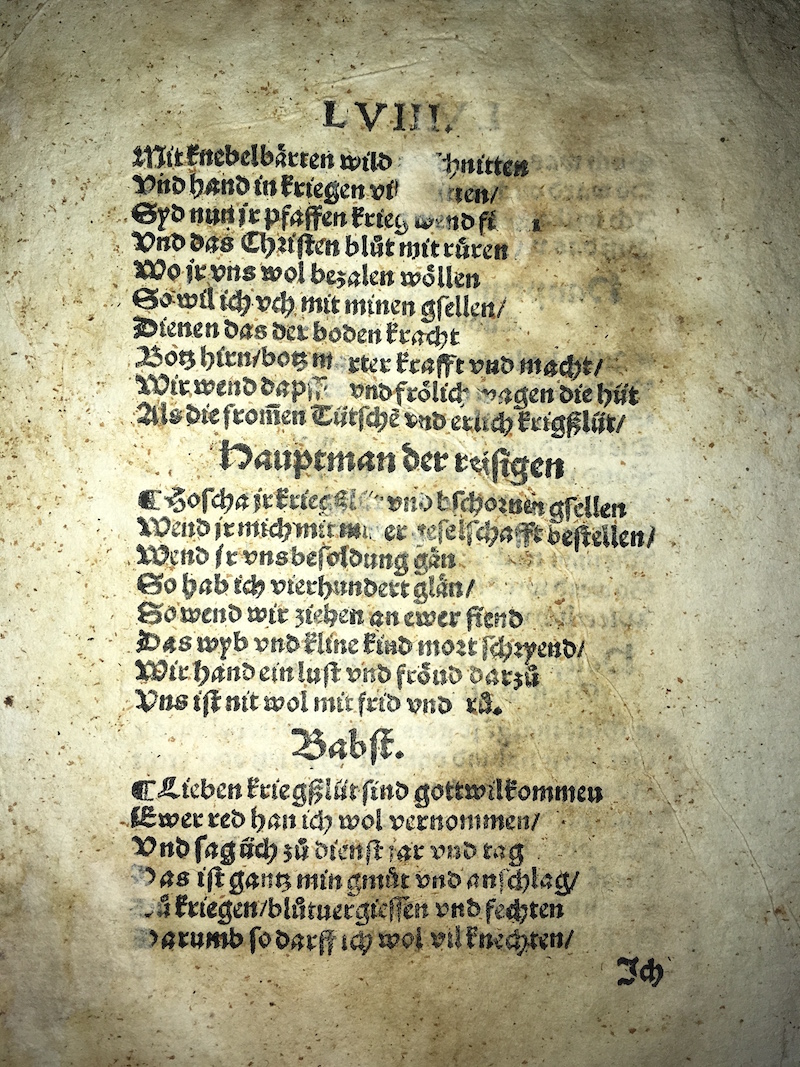 LVIII.
Mit knebelbärten wild
Vnd hand in kriegen
Syd nun jr pfaffen krieg wend
Vnd das Christen blůt mit rüren
Wo jr vns wol bezalen wöllen
So wil ich vch mit minen gsellen/
Dienen das der boden kracht
Botz hirn/botz krafft vnd macht/
Wir wend vnd frölich wagen die hüt
Als die from̄en Tütschē vnd erlich krigßlüt/
Hauptman der reisigen
¶ Hoscha jr vnd bschornen gsellen
Wend jr mich mit geselschafft bestellen/
Wend jr vns besoldung gän
So hab ich vierhundert glän/
So wend wir ziehen an ewer fiend
Das wyb vnd kline kind mort schryend/
Wir hand ein lust vnd fröud darzů
Vns ist nit wol mit frid vnd rů.
Babst.
¶ Lieben kriegßlüt sind gottwilkommen
Ewer red han ich wol vernommen/
Vnd sag üch zů dienst jar vnd tag
Das ist gantz min gmůt vnd anschlag/
Zů kriegen/blůtuergiessen vnd fechten
Darumb so darff ich wol vil knechten/
Ich